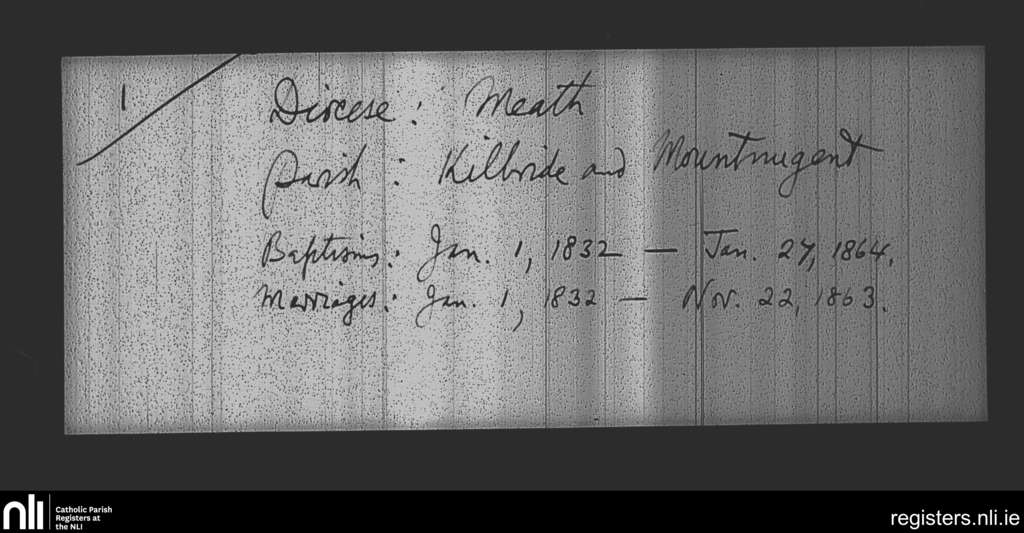 1
Diocese: Meath
Parish: Killbride and Mountnugent
Baptisms: Jan. 1, 1832 — Jan. 27, 1864.
Marriages: Jan. 1, 1832 — Nov. 22, 1863.
nli
Catholic Parish
Registers at
the NLI
registers.nli.ie